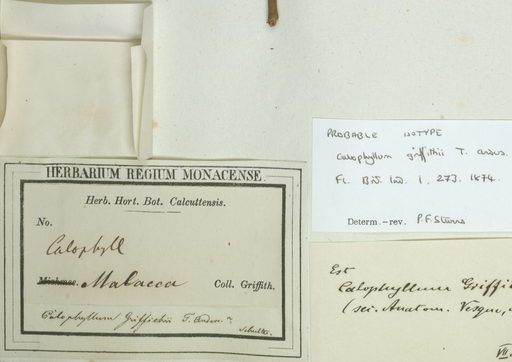 HERBARIUM REGIUM MONACENSE.
Herb. Hort. Bot. Calcuttensis.
No.
Calophyll
Mishmee. Malacca Coll. Griffith.
Calophyllum Griffithii T. Anders.
PROBABLE ISOTYPE
Calophyllum griffithii T. Anders.
Fl. Brit. Ind. 1, 273. 1874.
Determ.-rev. P.F. Stevens
Est
Calophyllum Griffi
(sec. Anatom. Vesque,
VII